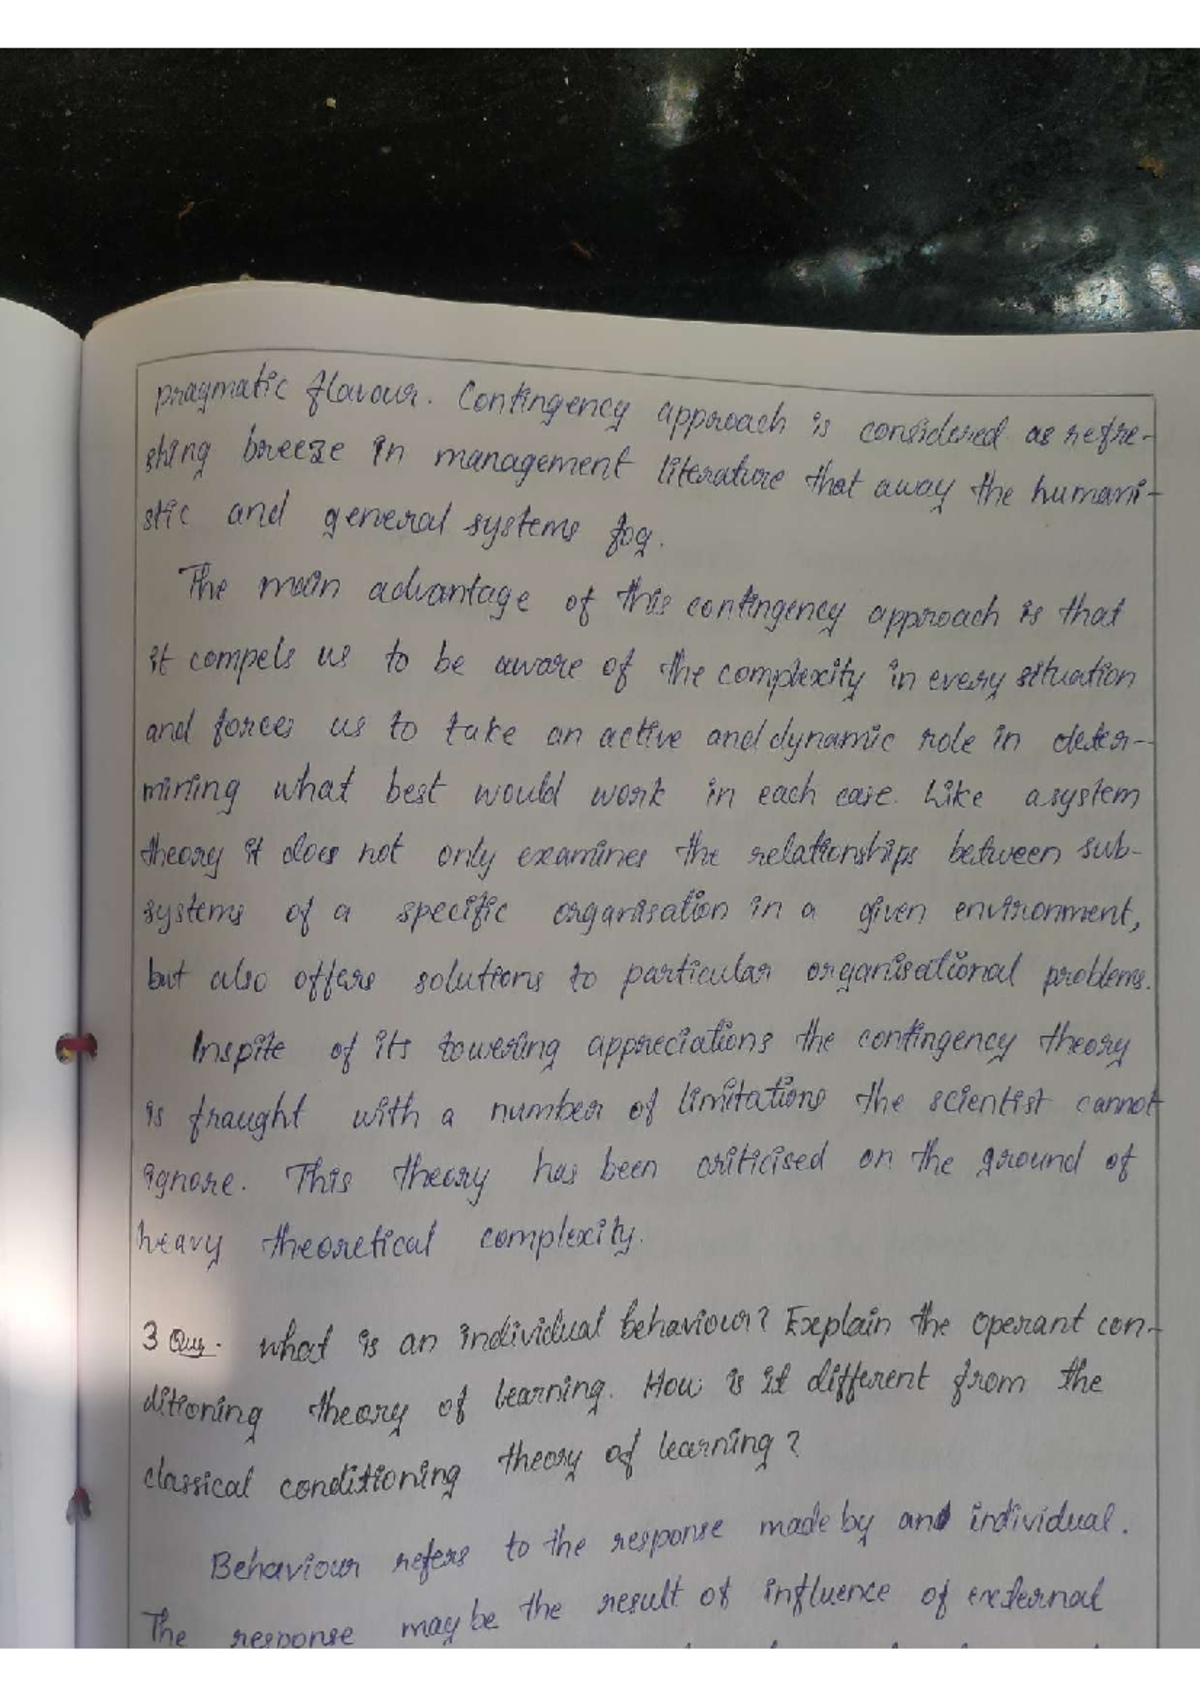 pragmatic flavour. Contingency approach is considered as refre-
shing breeze in management literature that away the humani-
stic and general systems fog.
The main advantage of this contingency approach is that
it compels us to be aware of the complexity in every situation
and forces us to take an active and dynamic role in deter-
mining what best would work in each case. Like a system
theory it does not only examines the relationships between sub-
systems of a specific organisation in a given environment,
but also offers solutions to particular organisational problems.
Inspite of its towering appreciations the contingency theory
is fraught with a number of limitations the scientist cannot
ignore. This theory has been criticised on the ground of
heavy theoretical complexity.
3 Ques. What is an individual behaviour? Explain the operant con-
ditioning theory of learning. How is it different from the
classical conditioning theory of learning?
Behaviour refers to the response made by an individual.
The response may be the result of influence of external